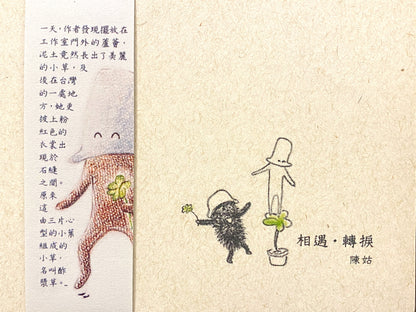 一天,作者發現擺放在
工作室門外的蘆薈,
泥土竟然長出了美麗
的小草,及
後在台灣
的一處地
方,她更
披上粉
紅色的
衣裳出
現於
石縫
之間。
原來
這
由三片心
型的小葉
組成的
小草,
名叫酢
漿草。
相遇·轉捩
陳姑